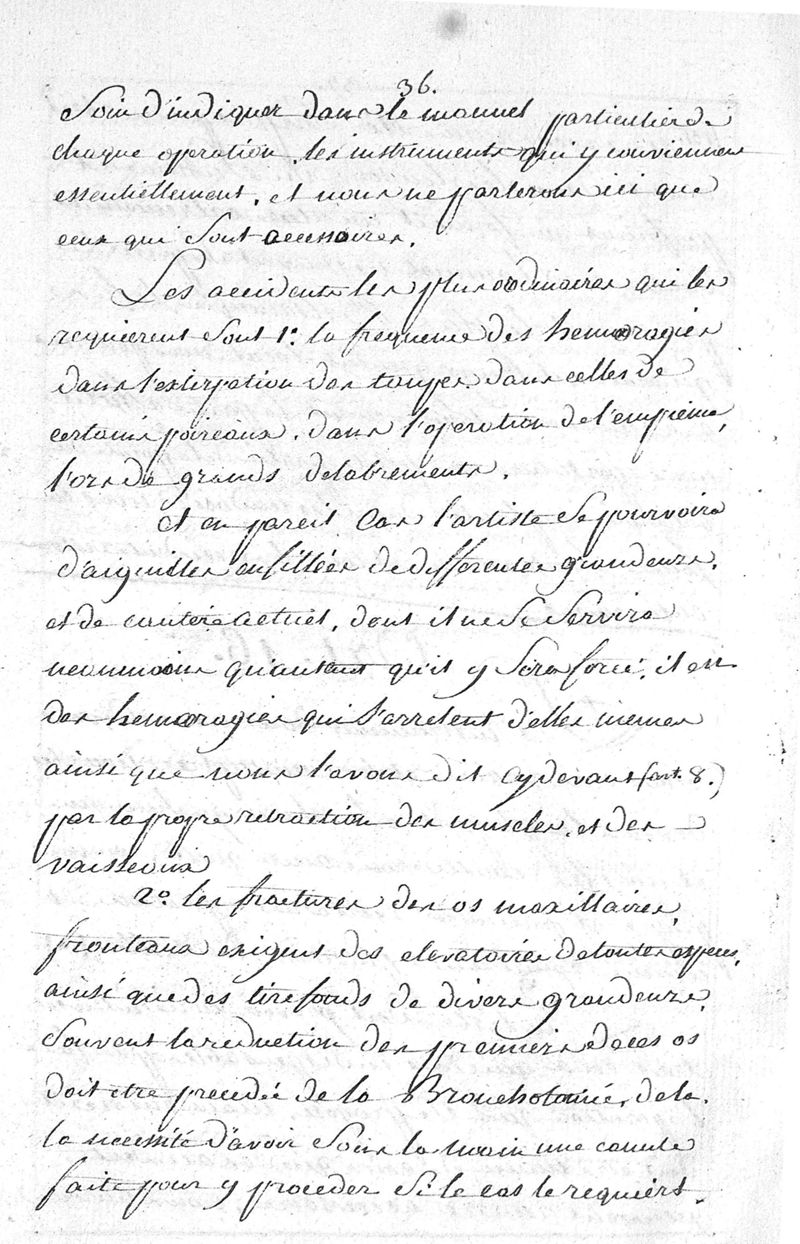 36.
Soin d'indiquer dans le manuel particulier de
chaque operation, les instruments qui y conviennent
essentiellement, et nous ne parlerons ici que
ceux qui sont accessoires.
Les accidents les plus ordinaires qui les
requierent sont 1º. la frequence des hemoragies
dans l'extirpation des taupes, dans celles de
certains poireaux, dans l'operation de l'empieme,
lors de grands delabrements.
et en pareil cas l'artiste se pourvoira
d'aiguilles enfillées de differentes grandeurs,
et de cautere actuel, dont il ne se servira
neanmoins qu'autant qu'il y sera forcé, il est
des hemoragies qui s'arretent d'elles memes
ainsi que nous l'avons dit cy devant (art. 8.)
par la propre retraction des muscles, et des
vaisseaux
2º. les fractures des os maxillaires,
frontaux exigent des elevatoires de toutes especes,
ainsi que des tirefonds de divers grandeurs,
Souvent la reduction des premiers de ces os
doit etre precedée de la Bronchotomie, de la
la necessité d'avoir sous la main une canule
faite pour y proceder si le cas le requiert.